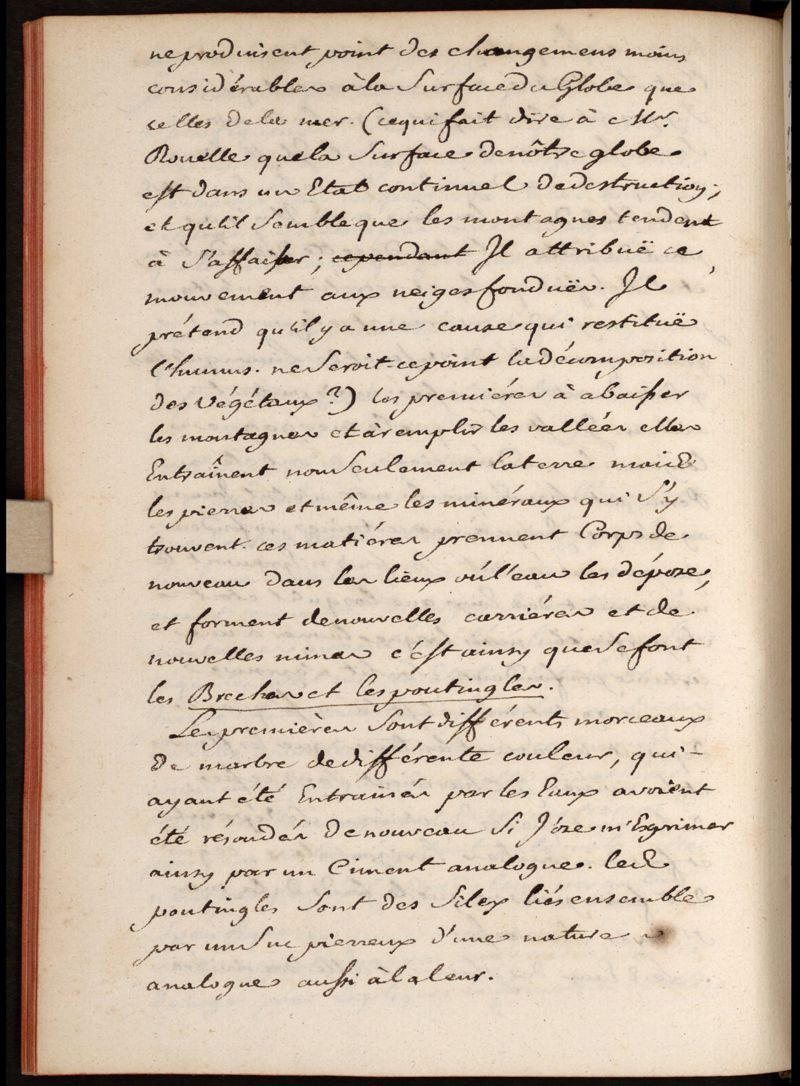 ne produisent point des changemens moins
considérables à la Surface du Globe que
celles de la mer. (ce qui fait dire à Mr.
Rouelle que la Surface de nôtre globe
est dans un Etat continuel de destruction;
et qu'il Semble que les montagnes tendent
à S'affaisser; cependant Il attribuë ce
mouvement aux neiges fonduës. Il
prétend qu'il y a une cause qui restituë
l'humus. ne Seroit-ce point la décomposition
des Végétaux?) les premiéres à abaisser
les montagnes et à remplir les vallées elles
Entraînent non Seulement la terre mais
les pierres et même les minéraux qui S'y
trouvent. ces matiéres prennent Corps de
nouveau dans les lieux où l'eau les dépose,
et forment de nouvelles carriéres et de
nouvelles mines c'est ainsy que Se font
les Breches et les poutingles.
Les premières Sont différents morceaux
de marbre de différente couleur, qui-
ayant été Entrainés par les Eaux avoient
été résoudés de nouveau Si J'ose m'Exprimer
ainsy par un Ciment analogue. les
poutingles Sont des Silex liés ensemble
par un Suc pierreux d'une nature
analogue aussi à la leur.